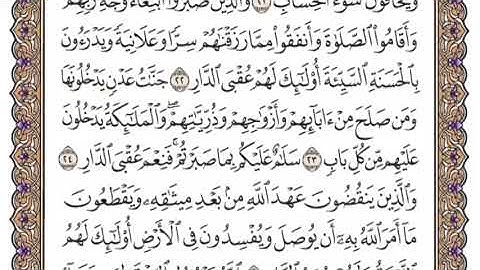 وَيَخَافُونَ سُوٓءَ ٱلْحِسَابِ ٢١ وَٱلَّذِينَ صَبَرُوا۟ ٱبْتِغَآءَ وَجْهِ رَبِّهِمْ
وَأَقَامُوا۟ ٱلصَّلَوٰةَ وَأَنفَقُوا۟ مِمَّا رَزَقْنَٰهُمْ سِرًّا وَعَلَانِيَةً وَيَدْرَءُونَ
بِٱلْحَسَنَةِ ٱلسَّيِّئَةَ أُو۟لَٰٓئِكَ لَهُمْ عُقْبَى ٱلدَّارِ ٢٢ جَنَّٰتُ عَدْنٍ يَدْخُلُونَهَا
وَمَن صَلَحَ مِنْ ءَابَآئِهِمْ وَأَزْوَٰجِهِمْ وَذُرِّيَّٰتِهِمْ ۖ وَٱلْمَلَٰٓئِكَةُ يَدْخُلُونَ
عَلَيْهِم مِّن كُلِّ بَابٍ ٢٣ سَلَٰمٌ عَلَيْكُم بِمَا صَبَرْتُمْ ۚ فَنِعْمَ عُقْبَى ٱلدَّارِ ٢٤
وَٱلَّذِينَ يَنقُضُونَ عَهْدَ ٱللَّهِ مِنۢ بَعْدِ مِيثَٰقِهِۦ وَيَقْطَعُونَ
مَآ أَمَرَ ٱللَّهُ بِهِۦٓ أَن يُوصَلَ وَيُفْسِدُونَ فِى ٱلْأَرْضِ أُو۟لَٰٓئِكَ لَهُمُ